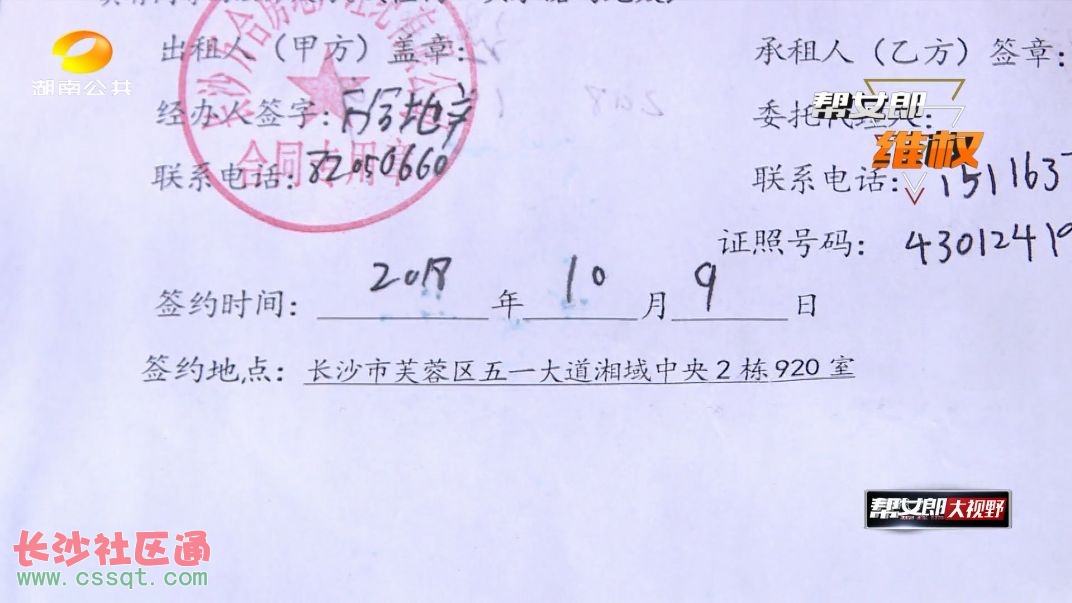 湖南公共
出租人（甲方）盖章:
承租人（乙方）签章:
合同专用章
经办人签字:
委托代理人:
帮女郎
维权
联系电话: 82050660
联系电话: 1511637
证照号码: 43012419
签约时间: 2018 年 10 月 9 日
签约地点: 长沙市芙蓉区五一大道湘域中央2栋920室
帮女郎大视野
长沙社区通
www.cssqt.com